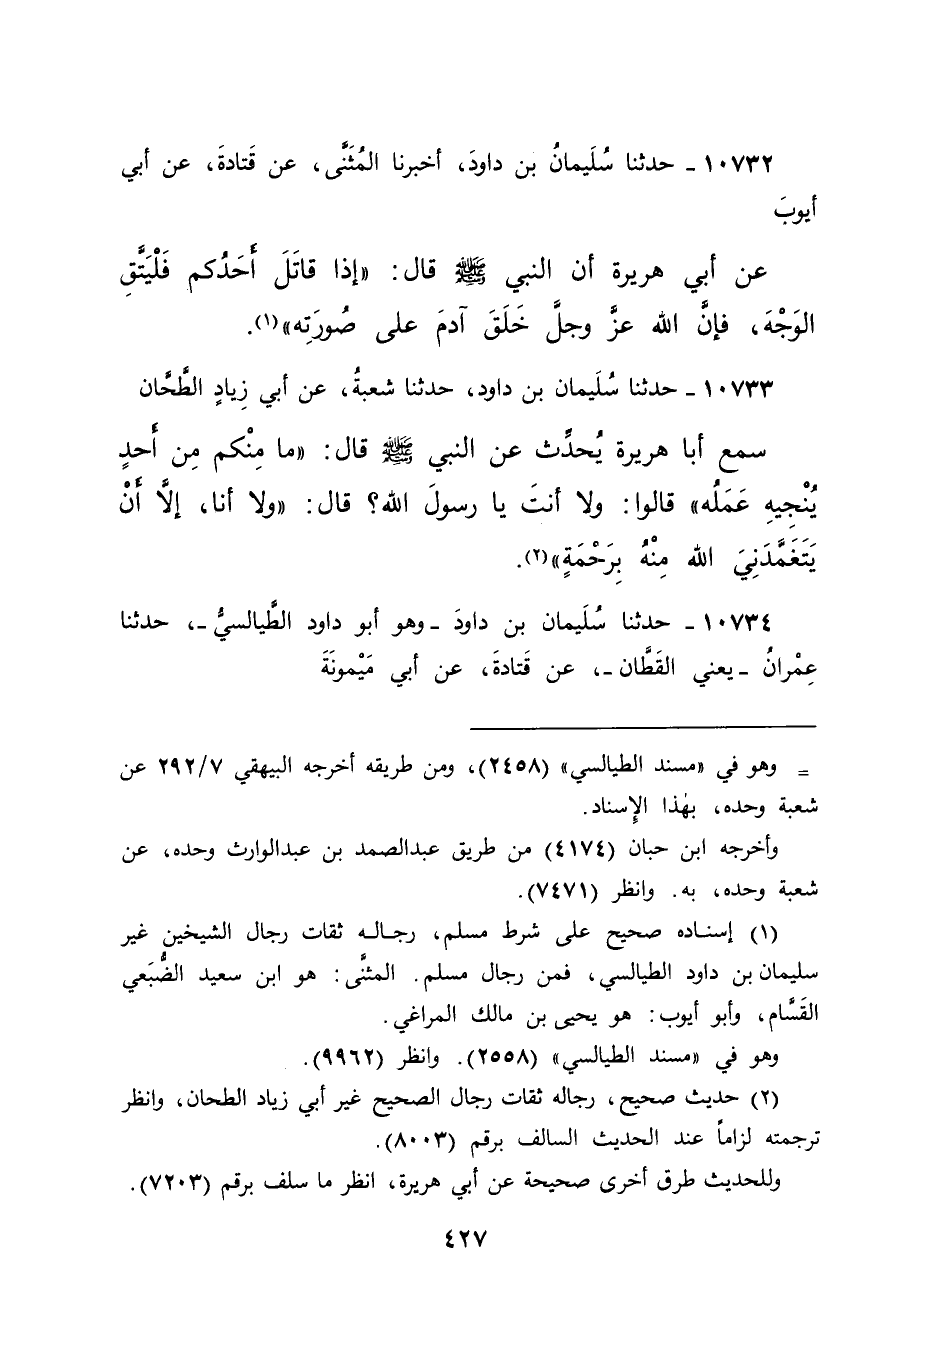 ١٠٧٣٢ - حدثنا سُلَيمانُ بن داودَ، أخبرنا المُثَنَّى، عن قَتادةَ، عن أبي
أيوبَ
عن أبي هريرة أن النبي ﷺ قال: «إذا قاتَلَ أَحَدُكم فَلْيَتَّقِ
الوَجْهَ، فإنَّ الله عزَّ وجلَّ خَلَقَ آدمَ على صُورَتِه»(١).
١٠٧٣٣ - حدثنا سُلَيمان بن داود، حدثنا شعبةُ، عن أبي زِيادٍ الطَّحَّان
سمع أبا هريرة يُحدِّث عن النبي ﷺ قال: «ما مِنْكم مِن أَحدٍ
يُنْجِيهِ عَمَلُه» قالوا: ولا أنتَ يا رسولَ الله؟ قال: «ولا أنا، إلَّا أَنْ
يَتَغَمَّدَنِيَ الله مِنْهُ بِرَحْمَةٍ»(٢).
١٠٧٣٤ - حدثنا سُلَيمان بن داودَ - وهو أبو داود الطَّيالسيُّ -، حدثنا
عِمْرانُ - يعني القَطَّان -، عن قَتادةَ، عن أبي مَيْمونَةَ
= وهو في «مسند الطيالسي» (٢٤٥٨)، ومن طريقه أخرجه البيهقي ٢٩٢/٧ عن
شعبة وحده، بهٰذا الإِسناد.
وأخرجه ابن حبان (٤١٧٤) من طريق عبدالصمد بن عبدالوارث وحده، عن
شعبة وحده، به. وانظر (٧٤٧١).
(١) إسناده صحيح على شرط مسلم، رجاله ثقات رجال الشيخين غير
سليمان بن داود الطيالسي، فمن رجال مسلم. المثنَّى: هو ابن سعيد الضُّبَعي
القَسَّام، وأبو أيوب: هو يحيى بن مالك المراغي.
وهو في «مسند الطيالسي» (٢٥٥٨). وانظر (٩٩٦٢).
(٢) حديث صحيح، رجاله ثقات رجال الصحيح غير أبي زياد الطحان، وانظر
ترجمته لزاماً عند الحديث السالف برقم (٨٠٠٣).
وللحديث طرق أخرى صحيحة عن أبي هريرة، انظر ما سلف برقم (٧٢٠٣).
٤٢٧